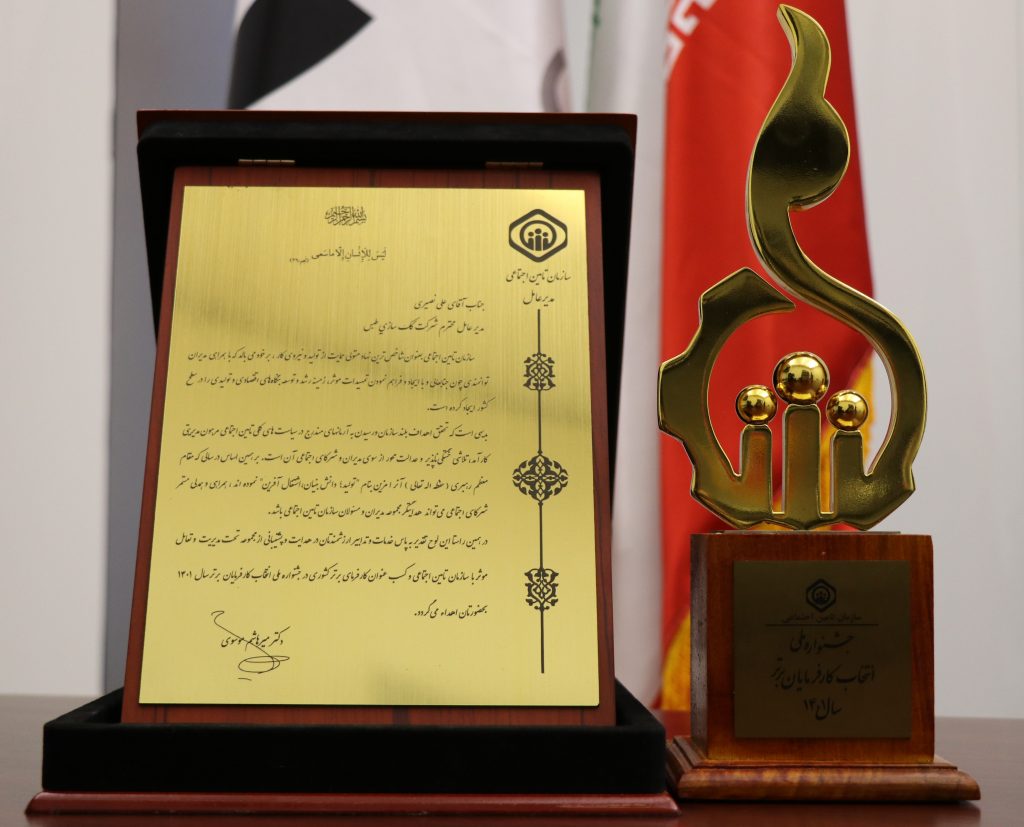 بسم الله الرحمن الرحیم
لَیْسَ لِلْإِنْسانِ إِلّا ما سَعی (نجم-۳۹)
سازمان تامین اجتماعی
مدیرعامل
جناب آقای علی نصیری
مدیر عامل محترم شرکت کک سازی طبس
سازمان تامین اجتماعی بعنوان شاخص ترین نهاد متولی حمایت از تولید و نیروی کار ، بر خود می بالد که با همراهی مدیران
توانمندی چون جنابعالی و با ایجاد و فراهم نمودن تمهیدات موثر، زمینه رشد و توسعه بنگاه‌های اقتصادی و تولیدی را در سطح
کشور ایجاد کرده است.
بدیهی است که تحقق اهداف بلند سازمان در رسیدن به آرمانهای مندرج در سیاست های کلی تامین اجتماعی مرهون مدیریتی
کارآمد، تلاشی خستگی ناپذیر و عدالت محور از سوی مدیران و شرکای اجتماعی آن است. بر همین اساس در سالی که مقام
معظم رهبری (حفظه اله تعالی) آنرا مزین بنام "تولید؛ دانش بنیان، اشتغال آفرین" نموده اند ، همراهی و همدلی مستمر
شرکای اجتماعی می‌تواند هدایتگر مجموعه مدیران و مسئولان سازمان تامین اجتماعی باشد.
در همین راستا این لوح تقدیر به پاس خدمات و تدابیر ارزشمندتان در هدایت و پشتیبانی از مجموعه تحت مدیریت و تعامل
موثر با سازمان تامین اجتماعی و کسب عنوان کارفرمای برتر کشوری در جشنواره ملی انتخاب کارفرمایان برتر سال ۱۴۰۱
بحضورتان اهداء می گردد.
دکتر میرهاشم موسوی
سازمان تامین اجتماعی
جشنواره ملی
انتخاب کارفرمایان برتر
سال ۱۴۰۱